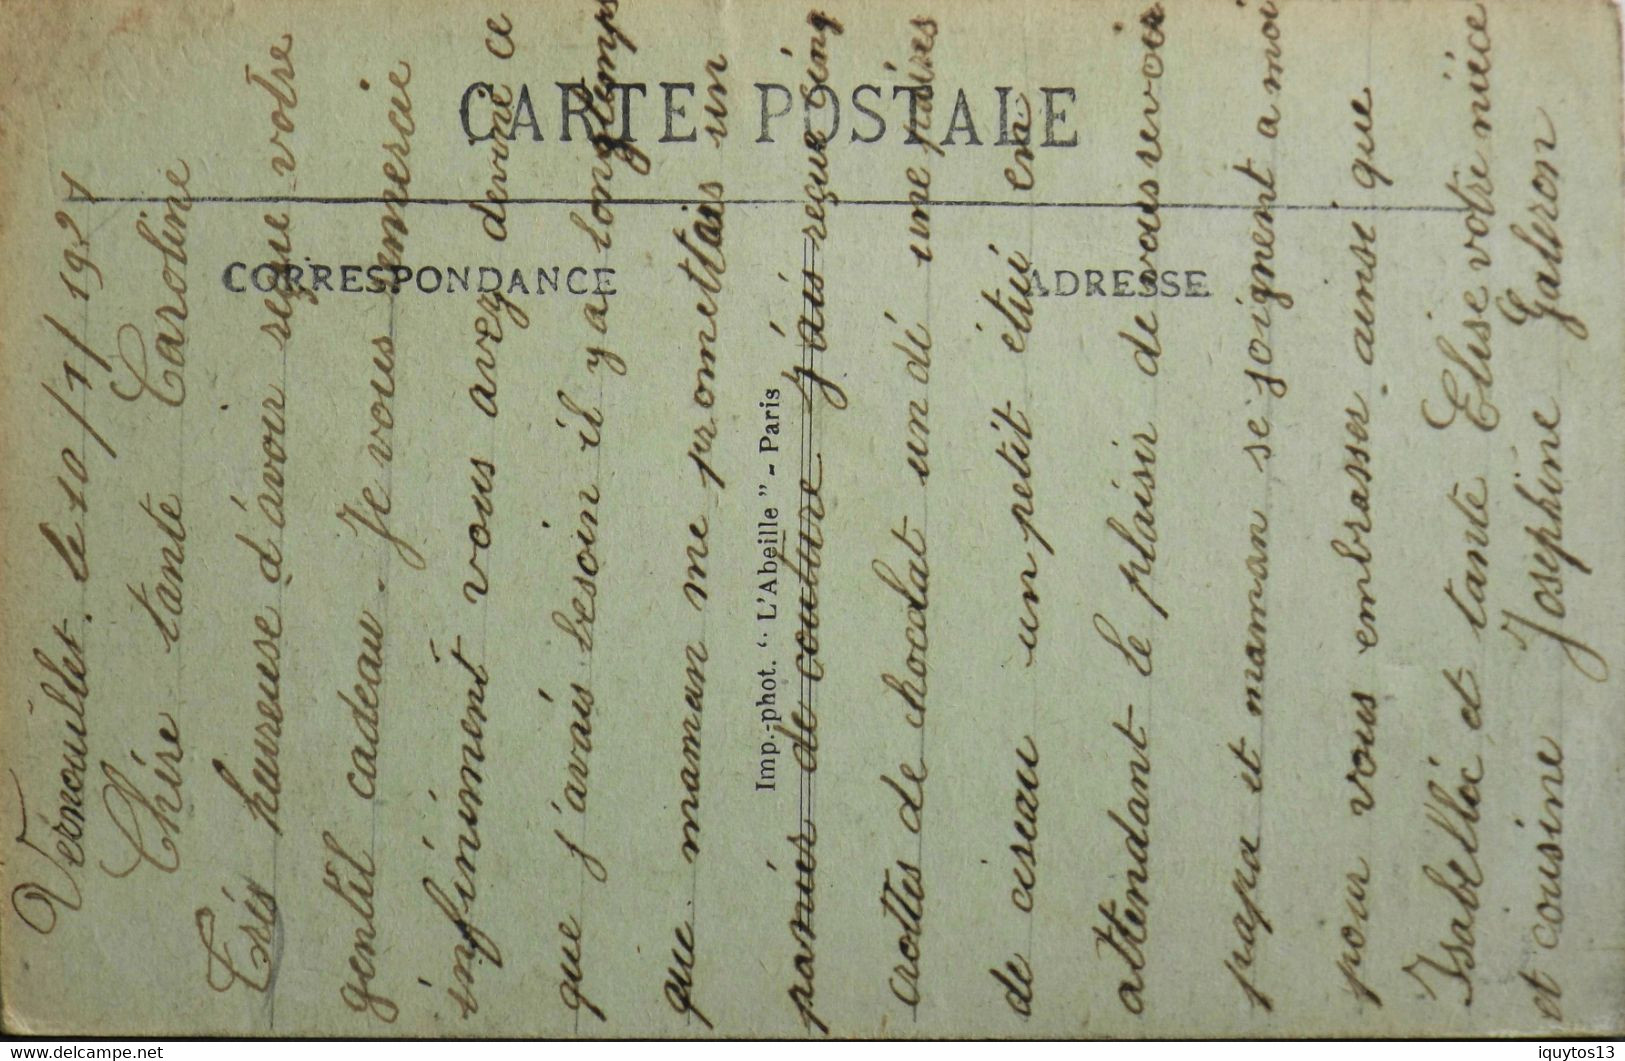 CARTE POSTALE
CORRESPONDANCE
ADRESSE
Imp.-phot. "L'Abeille" - Paris
Vernouillet. le 10/1/1921
Chère tante Caroline
Très heureuse d'avoir reçue votre
gentil cadeau. Je vous remercie
infiniment vous avez deviné ce
que j'avais besoin il y a longtemps
que maman me promettais un
panier de couture j'ais reçue cinq
crottes de chocolat un dé une paires
de ciseau un petit étui en
attendant le plaisir de vous revoir
papa et maman se joignent a moi
pour vous embrasser ainse que
Isabelle et tante Elise votre nièce
et cousine Josephine Galeron
www.delcampe.net
iquytos13